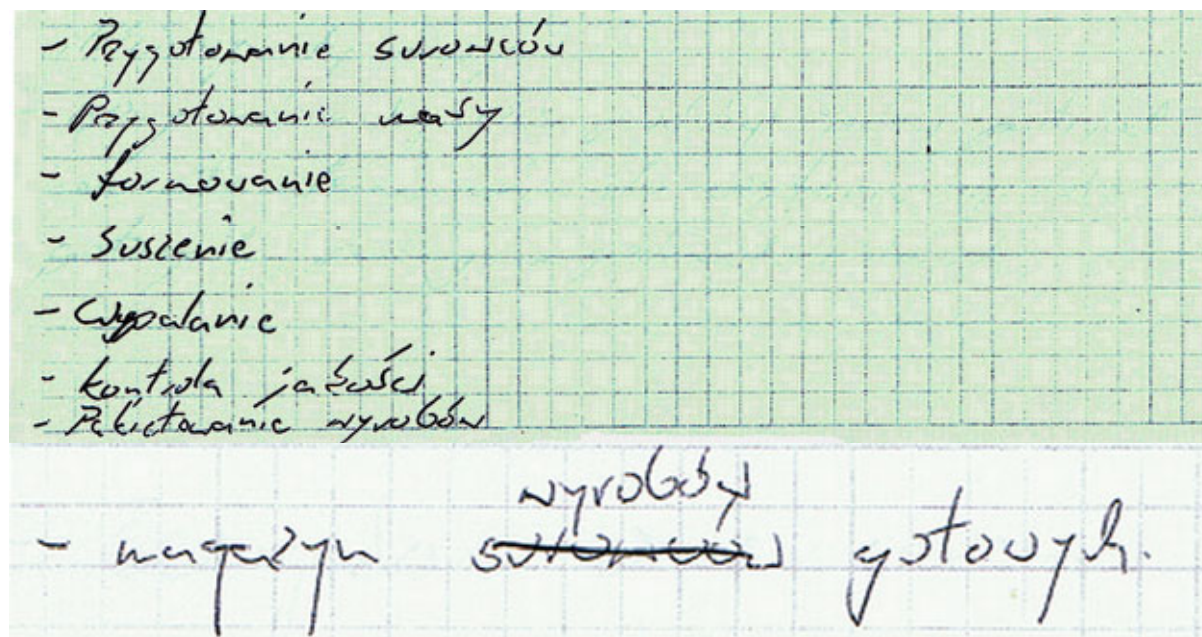 - Przygotowanie surowców
- Przygotowanie masy
- formowanie
- Suszenie
- Wypalanie
- kontrola jakości
- Pakietowanie wyrobów
wyrobów
- magazyn surowców gotowych.